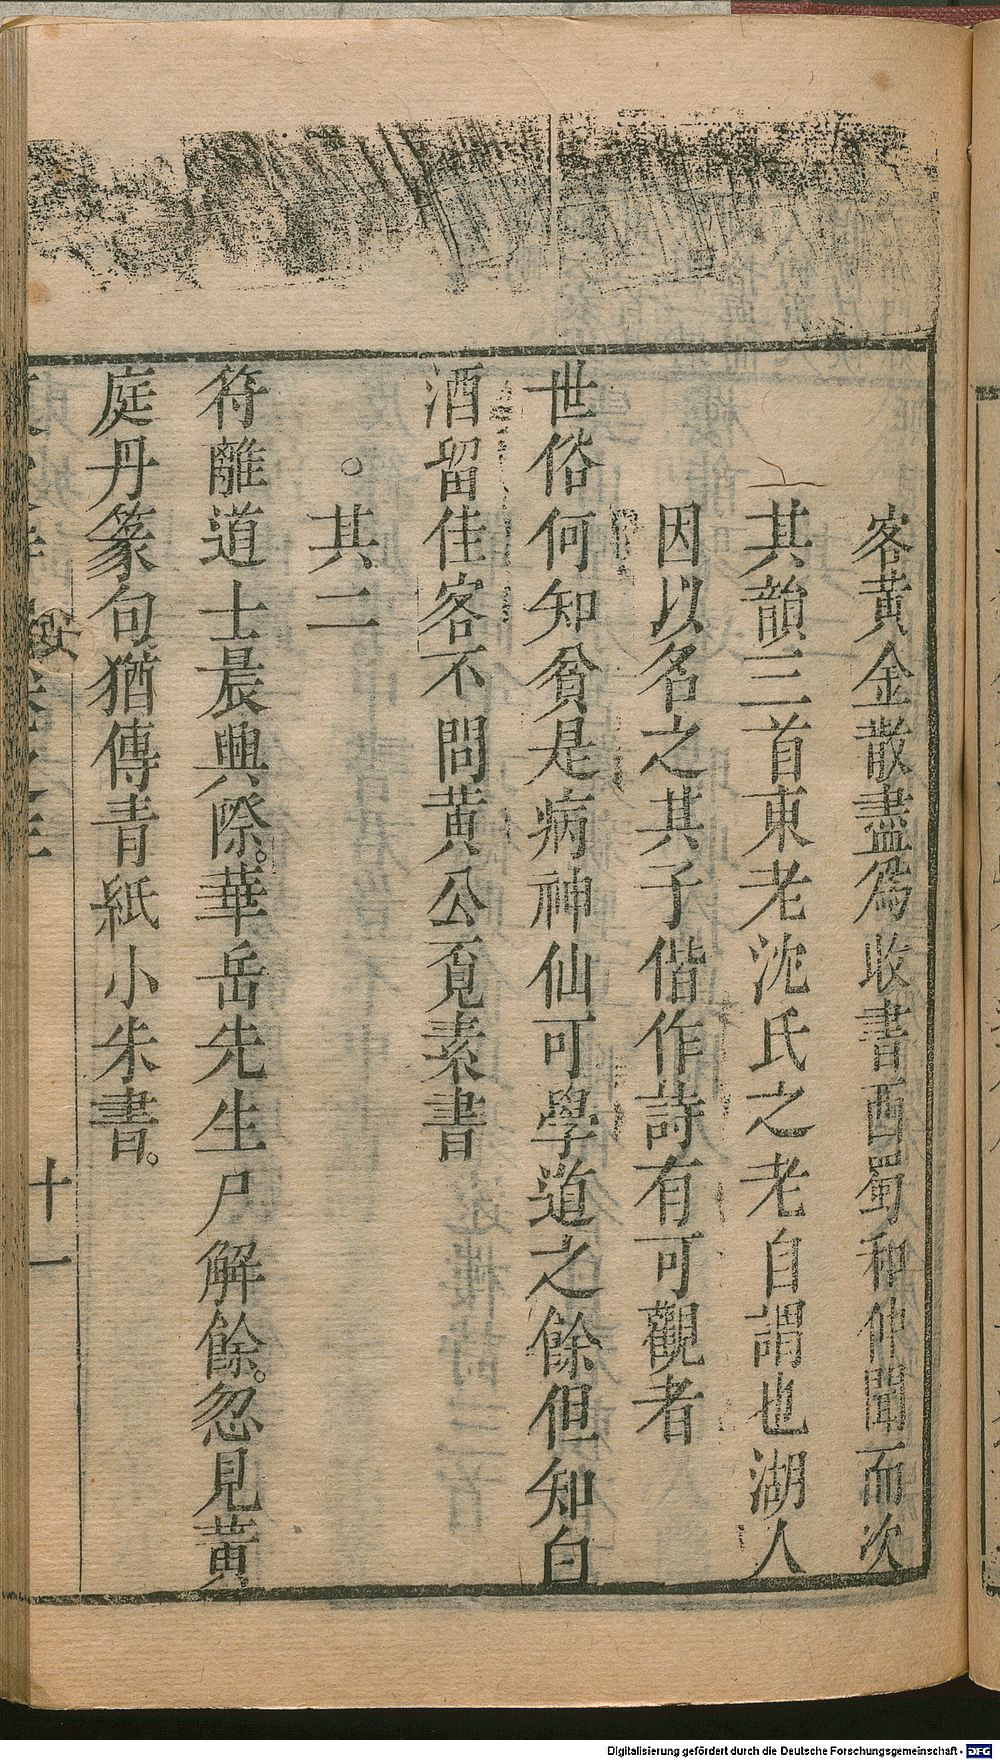 客黃金散盡爲收書西蜀和仲聞而次
其韻三首東老沈氏之老自謂也湖人
因以名之其子偕作詩有可觀者
世俗何知貧是病神仙可學道之餘但知白
酒留佳客不問黃公覓素書
。其二
符離道士晨興際。華岳先生尸解餘。忽見黃
庭丹篆句猶傳青紙小朱書。
卷之三
十一
Digitalisierung gefördert durch die Deutsche Forschungsgemeinschaft - DFG